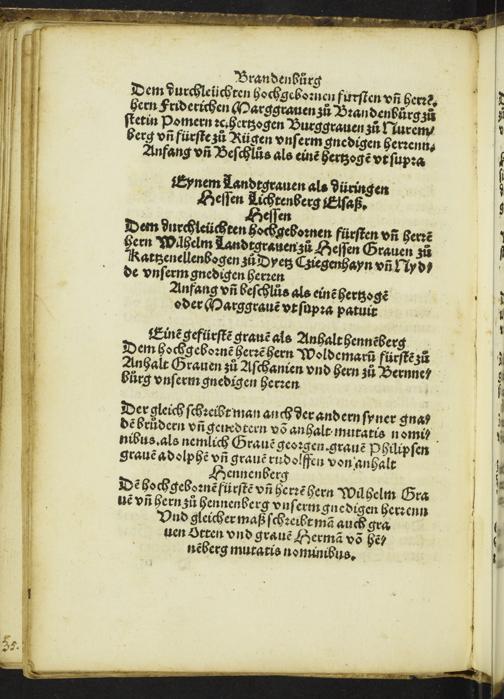 Brandenbürg
Dem durchleüchten hochgebornen fursten vn̄ herrē.
hern Friderichen Marggrauen zů Brandenbürg zů
stetin Pomern ꝛc. hertzogen Burggrauen zů Nurem⸗
berg vn̄ fürstē zů Rügen vnserm gnedigen herrenn.
Anfang vn̄ Beschlüs als einē hertzogē vt supra
Eynem Landtgrauen als düringen
Hessen Lichtenberg Elsaß.
Hessen
Dem durchleüchten hochgebornen fürsten vn̄ herrē
hern Wilhelm Landtgrauen zů Hessen Grauen zů
Kattzenellenbogen zů Dyetz Cziegenhayn vn̄ Nyd⸗
de vnserm gnedigen herren
Anfang vn̄ beschlüs als einē hertzogē
oder Marggrauē vt supra patuit
Einē gefürstē grauē als Anhalt hennēberg
Dem hochgebornē herrē hern Woldemarū fürstē zů
Anhalt Grauen zů Aschanien vnd hern zů Bernne⸗
bürg vnserm gnedigen herren
Der gleich schreibt man auch der andern syner gna⸗
dē brüdern vn̄ geuedtern vō anhalt mutatis nomi⸗
nibus. als nemlich Grauē georgen. grauē Philipsen
grauē adolphē vn̄ grauē rudolffen von anhalt
Hennenberg
Dē hochgebornē fürstē vn̄ herrē hern Wilhelm Gra
uē vn̄ hern zů hennenberg vnserm gnedigen herrenn
Vnd gleicher maß schreibt mā auch gra
uen Otten vnd grauē Hermā vō hē⸗
nēberg mutatis nominibus.
35.